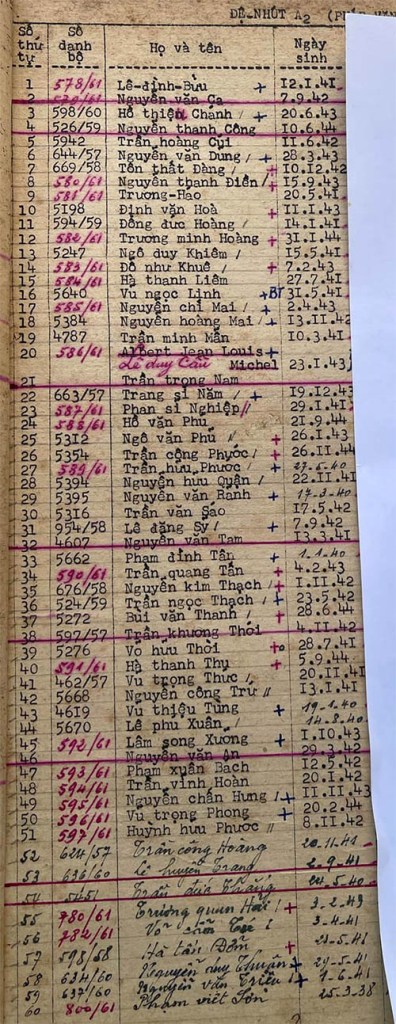 ĐỆ-NHỨT A2
Số thứ tự Số danh bộ Họ và tên Ngày sinh
1 578/61 Lê-đình-Bửu + 12.1.41
2 579/61 Nguyễn văn Ca 7.9.42
3 598/60 Hồ thiện Chánh / + 20.6.43
4 526/59 Nguyễn thanh Công 10.6.44
5 5942 Trần hoàng Cúi 11.6.42
6 644/57 Nguyễn văn Dung / + 28.3.43
7 669/58 Tôn thất Đàng / + 10.12.42
8 580/61 Nguyễn thanh Điền / + 15.9.43
9 581/61 Trương-Hao 20.5.41
10 5198 Đinh văn Hoà + 11.1.43
11 594/59 Đồng đức Hoàng / 14.1.41
12 582/61 Trương minh Hoàng + 31.1.44
13 5247 Ngô duy Khiêm / 15.5.41
14 583/61 Đỗ như Khuê / + 7.2.43
15 584/61 Hà thanh Liêm 27.7.41
16 5640 Vu ngọc Linh + 31.5.41
17 585/61 Nguyễn chi Mai / + 2.4.43
18 5384 Nguyễn hoàng Mai / + 13.11.42
19 4787 Trần minh Mẫn 10.3.41
20 586/61 Albert Jean Louis +
Lê duy Cầu Michel 23.1.43
21 Trần trọng Nam
22 663/57 Trang sĩ Năm / + 19.12.43
23 587/61 Phan si Nghiệp // 29.1.41
24 588/61 Hồ văn Phú 21.9.44
25 5312 Ngô văn Phú // + 26.1.43
26 5354 Trần công Phước / + 26.11.44
27 589/61 Trần hưu Phươc / + 27-5-40
28 5394 Nguyễn hưu Quận / 22.11.41
29 5395 Nguyễn văn Ranh + 17-3-40
30 5316 Trần văn Sao 17.5.42
31 954/58 Lê đăng Sỹ / + 7.9.42
32 4607 Nguyễn văn Tam 13.3.41
33 5662 Phạm đình Tân + 1-1-40
34 590/61 Trần quang Tấn + 4.2.43
35 676/58 Nguyễn kim Thạch / + 1.11.42
36 524/59 Trần ngọc Thạch / + 23.5.42
37 5272 Bùi văn Thanh / + 28.6.44
38 597/57 Trần khương Thới 4.11.42
39 5276 Vo hưu Thời 28.7.41
40 591/61 Hà thanh Thụ + 5.9.44
41 462/57 Vu trọng Thưc / 20.11.41
42 5668 Nguyễn công Trứ // 13.1.41
43 4619 Vu thiệu Tùng + 19-1-40
44 5670 Lê phu Xuân / 14-8-40
45 592/61 Lâm song Xương + 1.10.43
46 Nguyễn văn An 29.3.42
47 593/61 Phạm xuân Bach 12.5.42
48 594/61 Trần vinh Hoàn 20.1.42
49 595/61 Nguyễn chấn Hưng / + 11.11.43
50 596/61 Vu trọng Phong + 20.2.44
51 597/61 Huỳnh hưu Phước // 8.11.42
52 624/57 Trần công Hoàng 20-11-41
53 636/60 Lê huyền Trang 2-9-41
54 5451 Trần Thắng 24-5-40
55 780/61 Trương quan Hải / + 3-2-43
56 782/61 Võ 3-4-41
57 598/58 Hà tấn + 21-5-41
58 634/60 Nguyễn duy Thuận + 29-5-41
59 637/60 Nguyễn văn Triều / + 1-6-41
60 800/61 Phạm viết Sơn 25-3-38